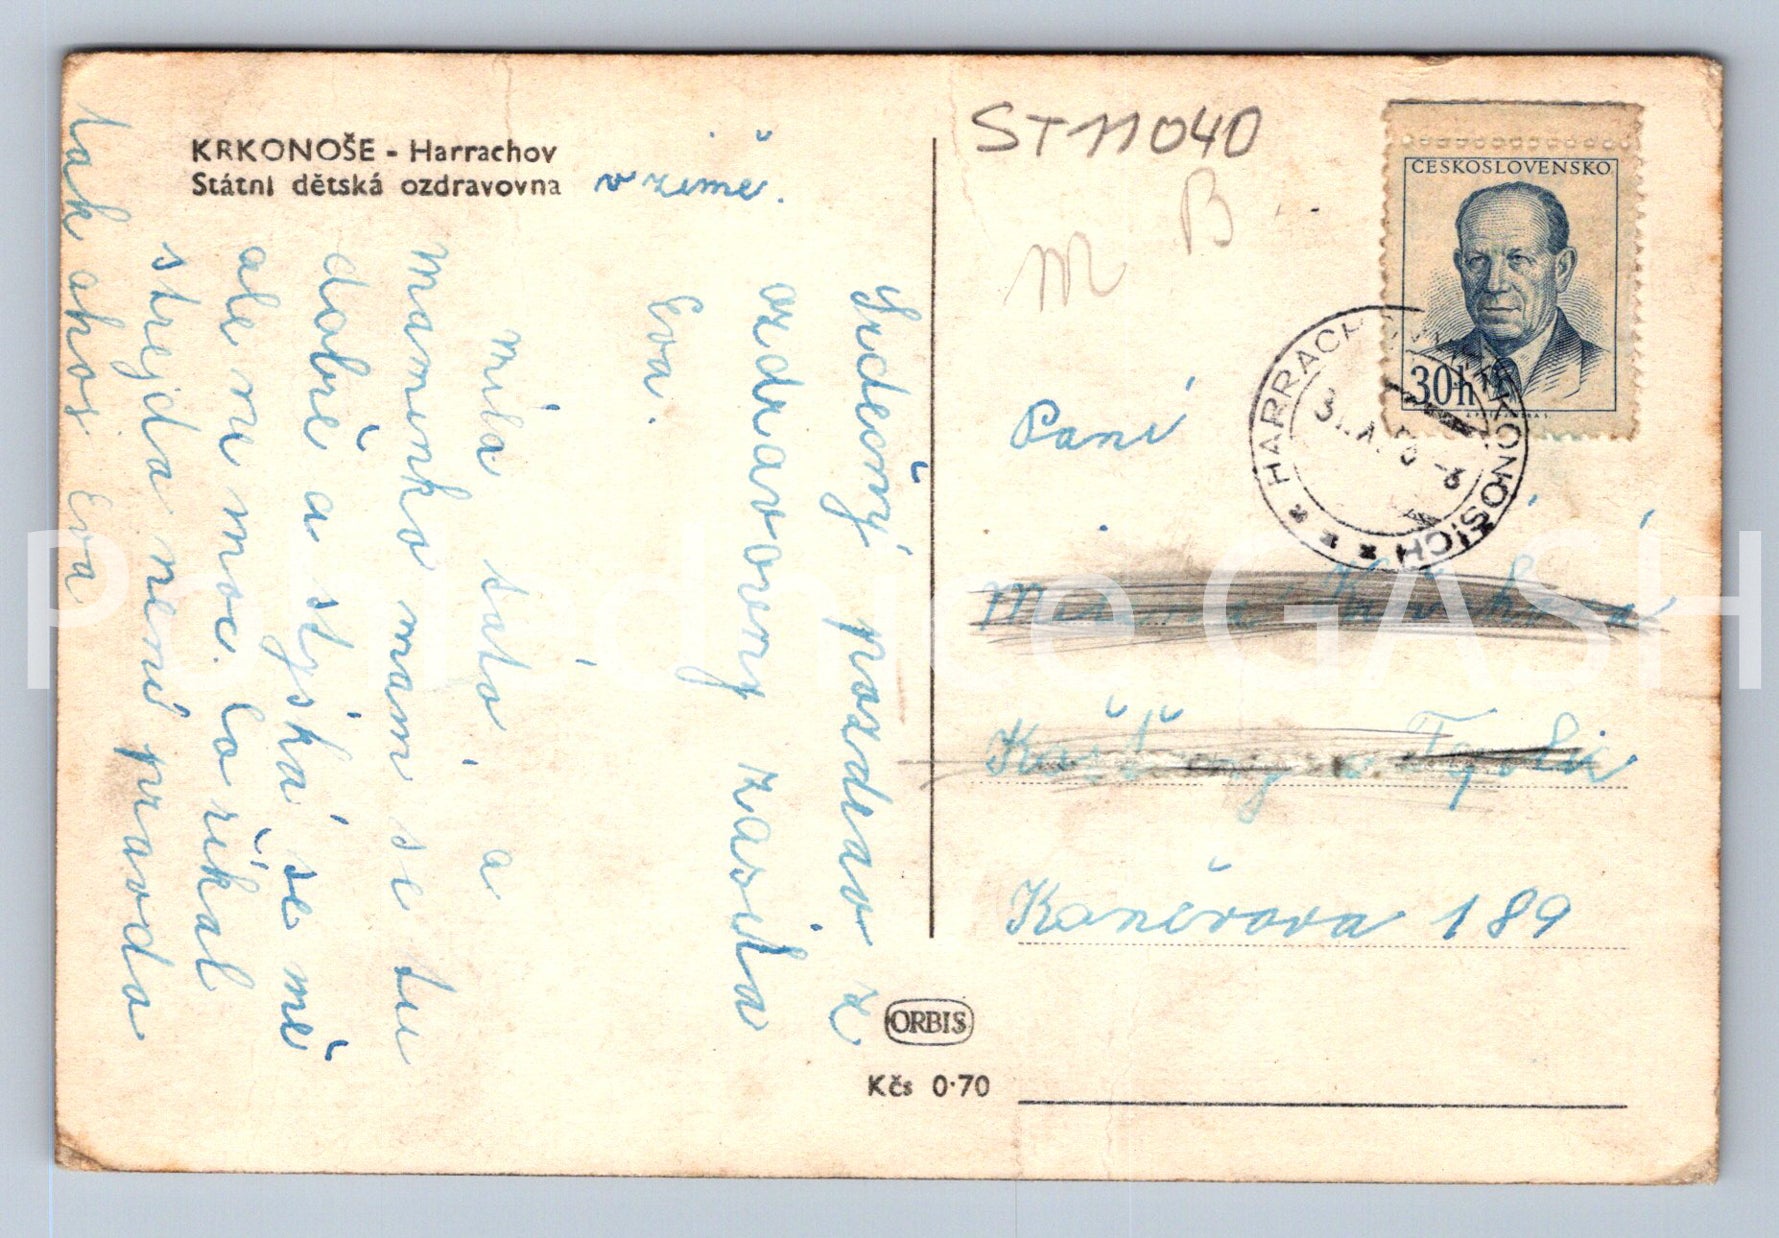 KRKONOŠE - Harrachov
Státní dětská ozdravovna v zimě.
Srdečný pozdrav z
ozdravovny zasílá
Eva.
milá táto a
maminko mám se tu
dobře a stýská se mě
ale ne moc. Co říkal
strejda není pravda
tak ahoj Eva
ST11040
M B
ČESKOSLOVENSKO
30h
HARRACHOV V KRKONOŠÍCH
Paní
Kančrova 189
ORBIS
Kčs 0·70
Pohlednice GASH